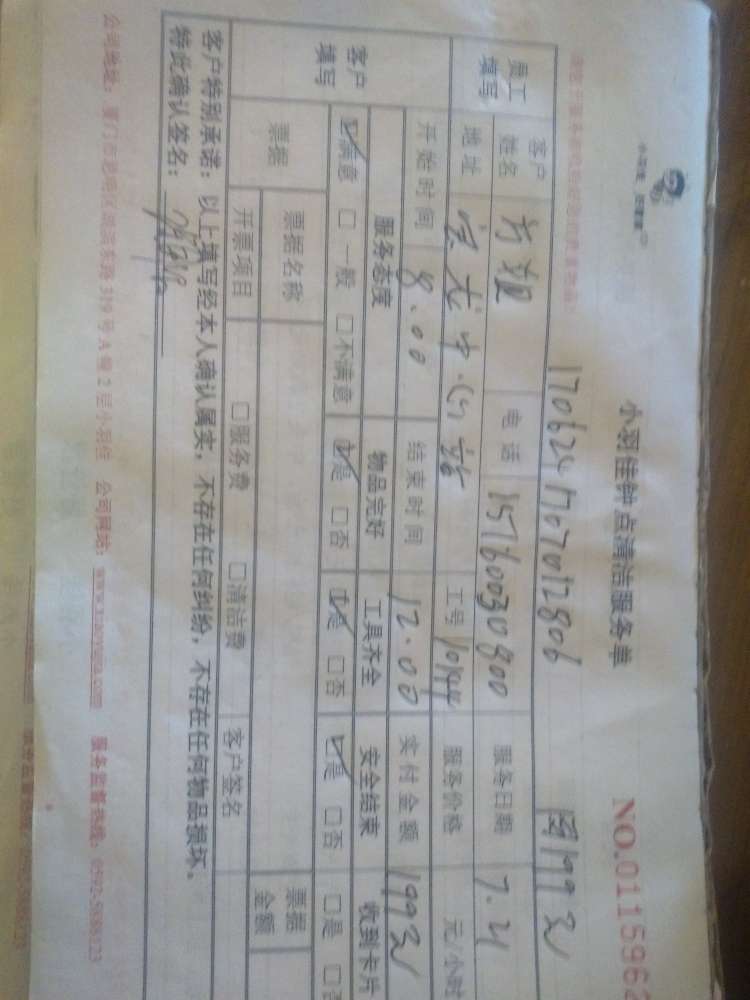 小羽佳钟点清洁服务单
NO.0115962
170624170701280b 团199元
员工填写 客户姓名 电话 15760030800 服务日期
地址 中心站 工号 服务价格 元/小时
开始时间 8.00 结束时间 12.00 实付金额 199元
客户填写 服务态度 物品完好 工具齐全 安全结束 收到卡片
☑满意 □一般 □不满意 ☑是 □否 ☑是 □否 ☑是 □否 □是 □否
票据 票据名称 票据金额
开票项目 □服务费 □清洁费 客户签名
客户特别承诺：以上填写经本人确认属实，不存在任何纠纷，不存在任何物品损坏。
特此确认签名：
公司地址：厦门市思明区 319号A幢2层小羽佳 公司网站：www.xiaoyujia.com 服务监督热线：0592-5888123